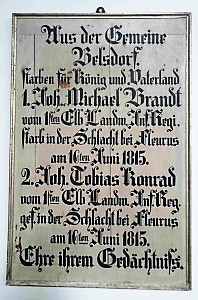 Aus der Gemeine
Belsdorf.
starben für König und Vaterland
1. Joh. Michael Brandt
vom 1sten Elb Landw. Inf. Regi.
starb in der Schlacht bei Fleurus
am 16ten Juni 1815.
2. Joh. Tobias Konrad
vom 1sten Elb. Landw. Inf. Reg.
gef. in der Schlacht bei Fleurus
am 16ten Juni 1815.
Ehre ihrem Gedächtniss.